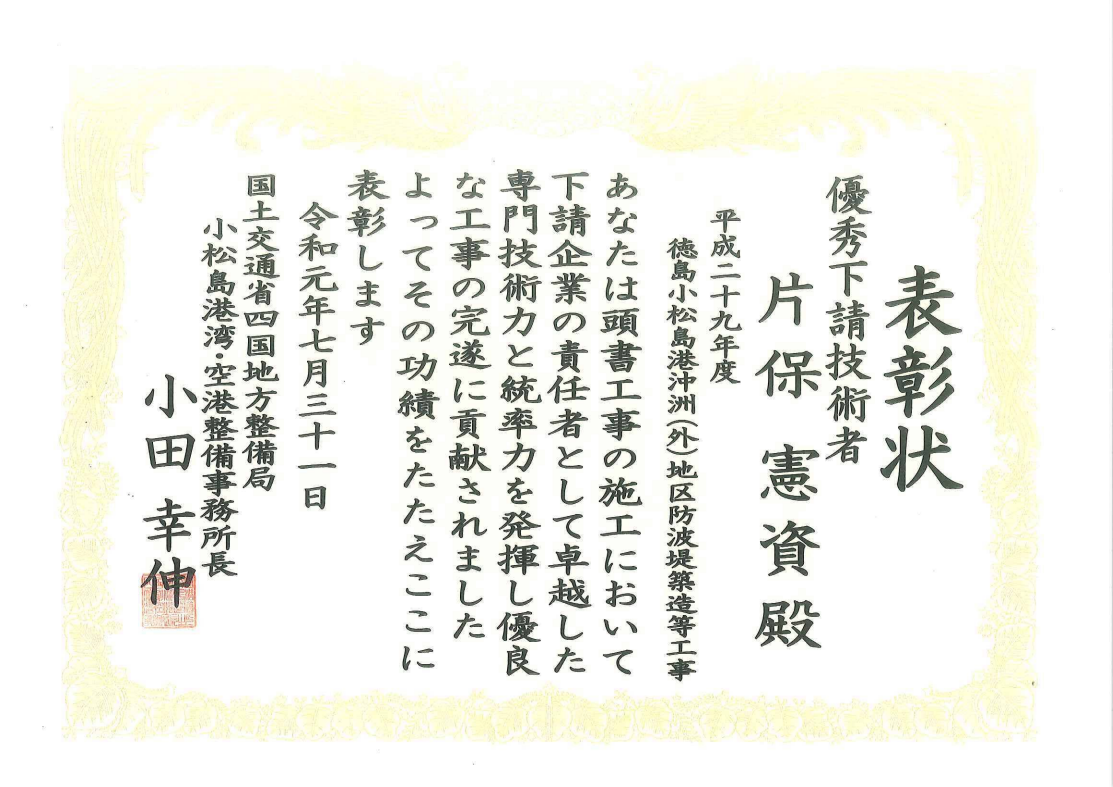 表彰状
優秀下請技術者
片保憲資殿
平成二十九年度
徳島小松島港沖洲(外)地区防波堤築造等工事
あなたは頭書工事の施工において
下請企業の責任者として卓越した
専門技術力と統率力を発揮し優良
な工事の完遂に貢献されました
よってその功績をたたえここに
表彰します
令和元年七月三十一日
国土交通省四国地方整備局
小松島港湾・空港整備事務所長
小田幸伸